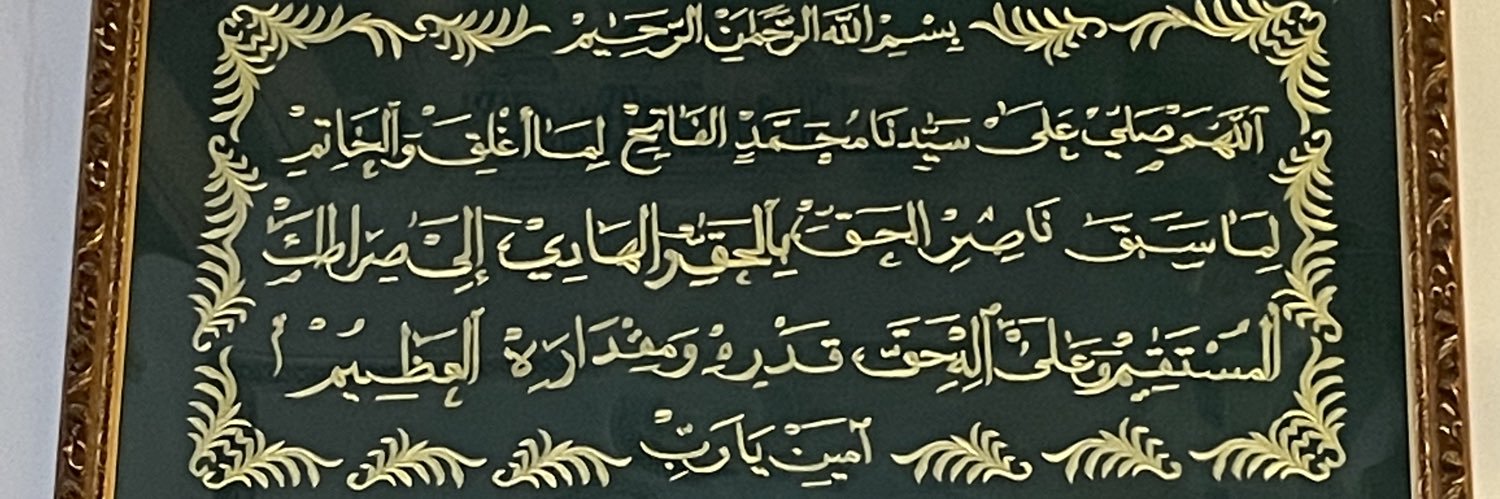 بِسْمِ اللَّهِ الرَّحْمٰنِ الرَّحِيْمِ
اَللّٰهُمَّ صَلِّيْ عَلىٰ سَيِّدِنَا مُحَمَّدٍ الفَاتِحِ لِمَا أُغْلِقَ وَالْخَاتِمِ
لِمَا سَبَقَ نَاصِرِ الْحَقِّ بِالْحَقِّ وَالهَادِيْ إِلىٰ صِرَاطِكَ
الْمُسْتَقِيْمِ وَعَلىٰ آلِهِ حَقَّ قَدْرِهْ وَمِقْدَارِهْ العَظِيْمُ أ
آمين يَا رَبِّ